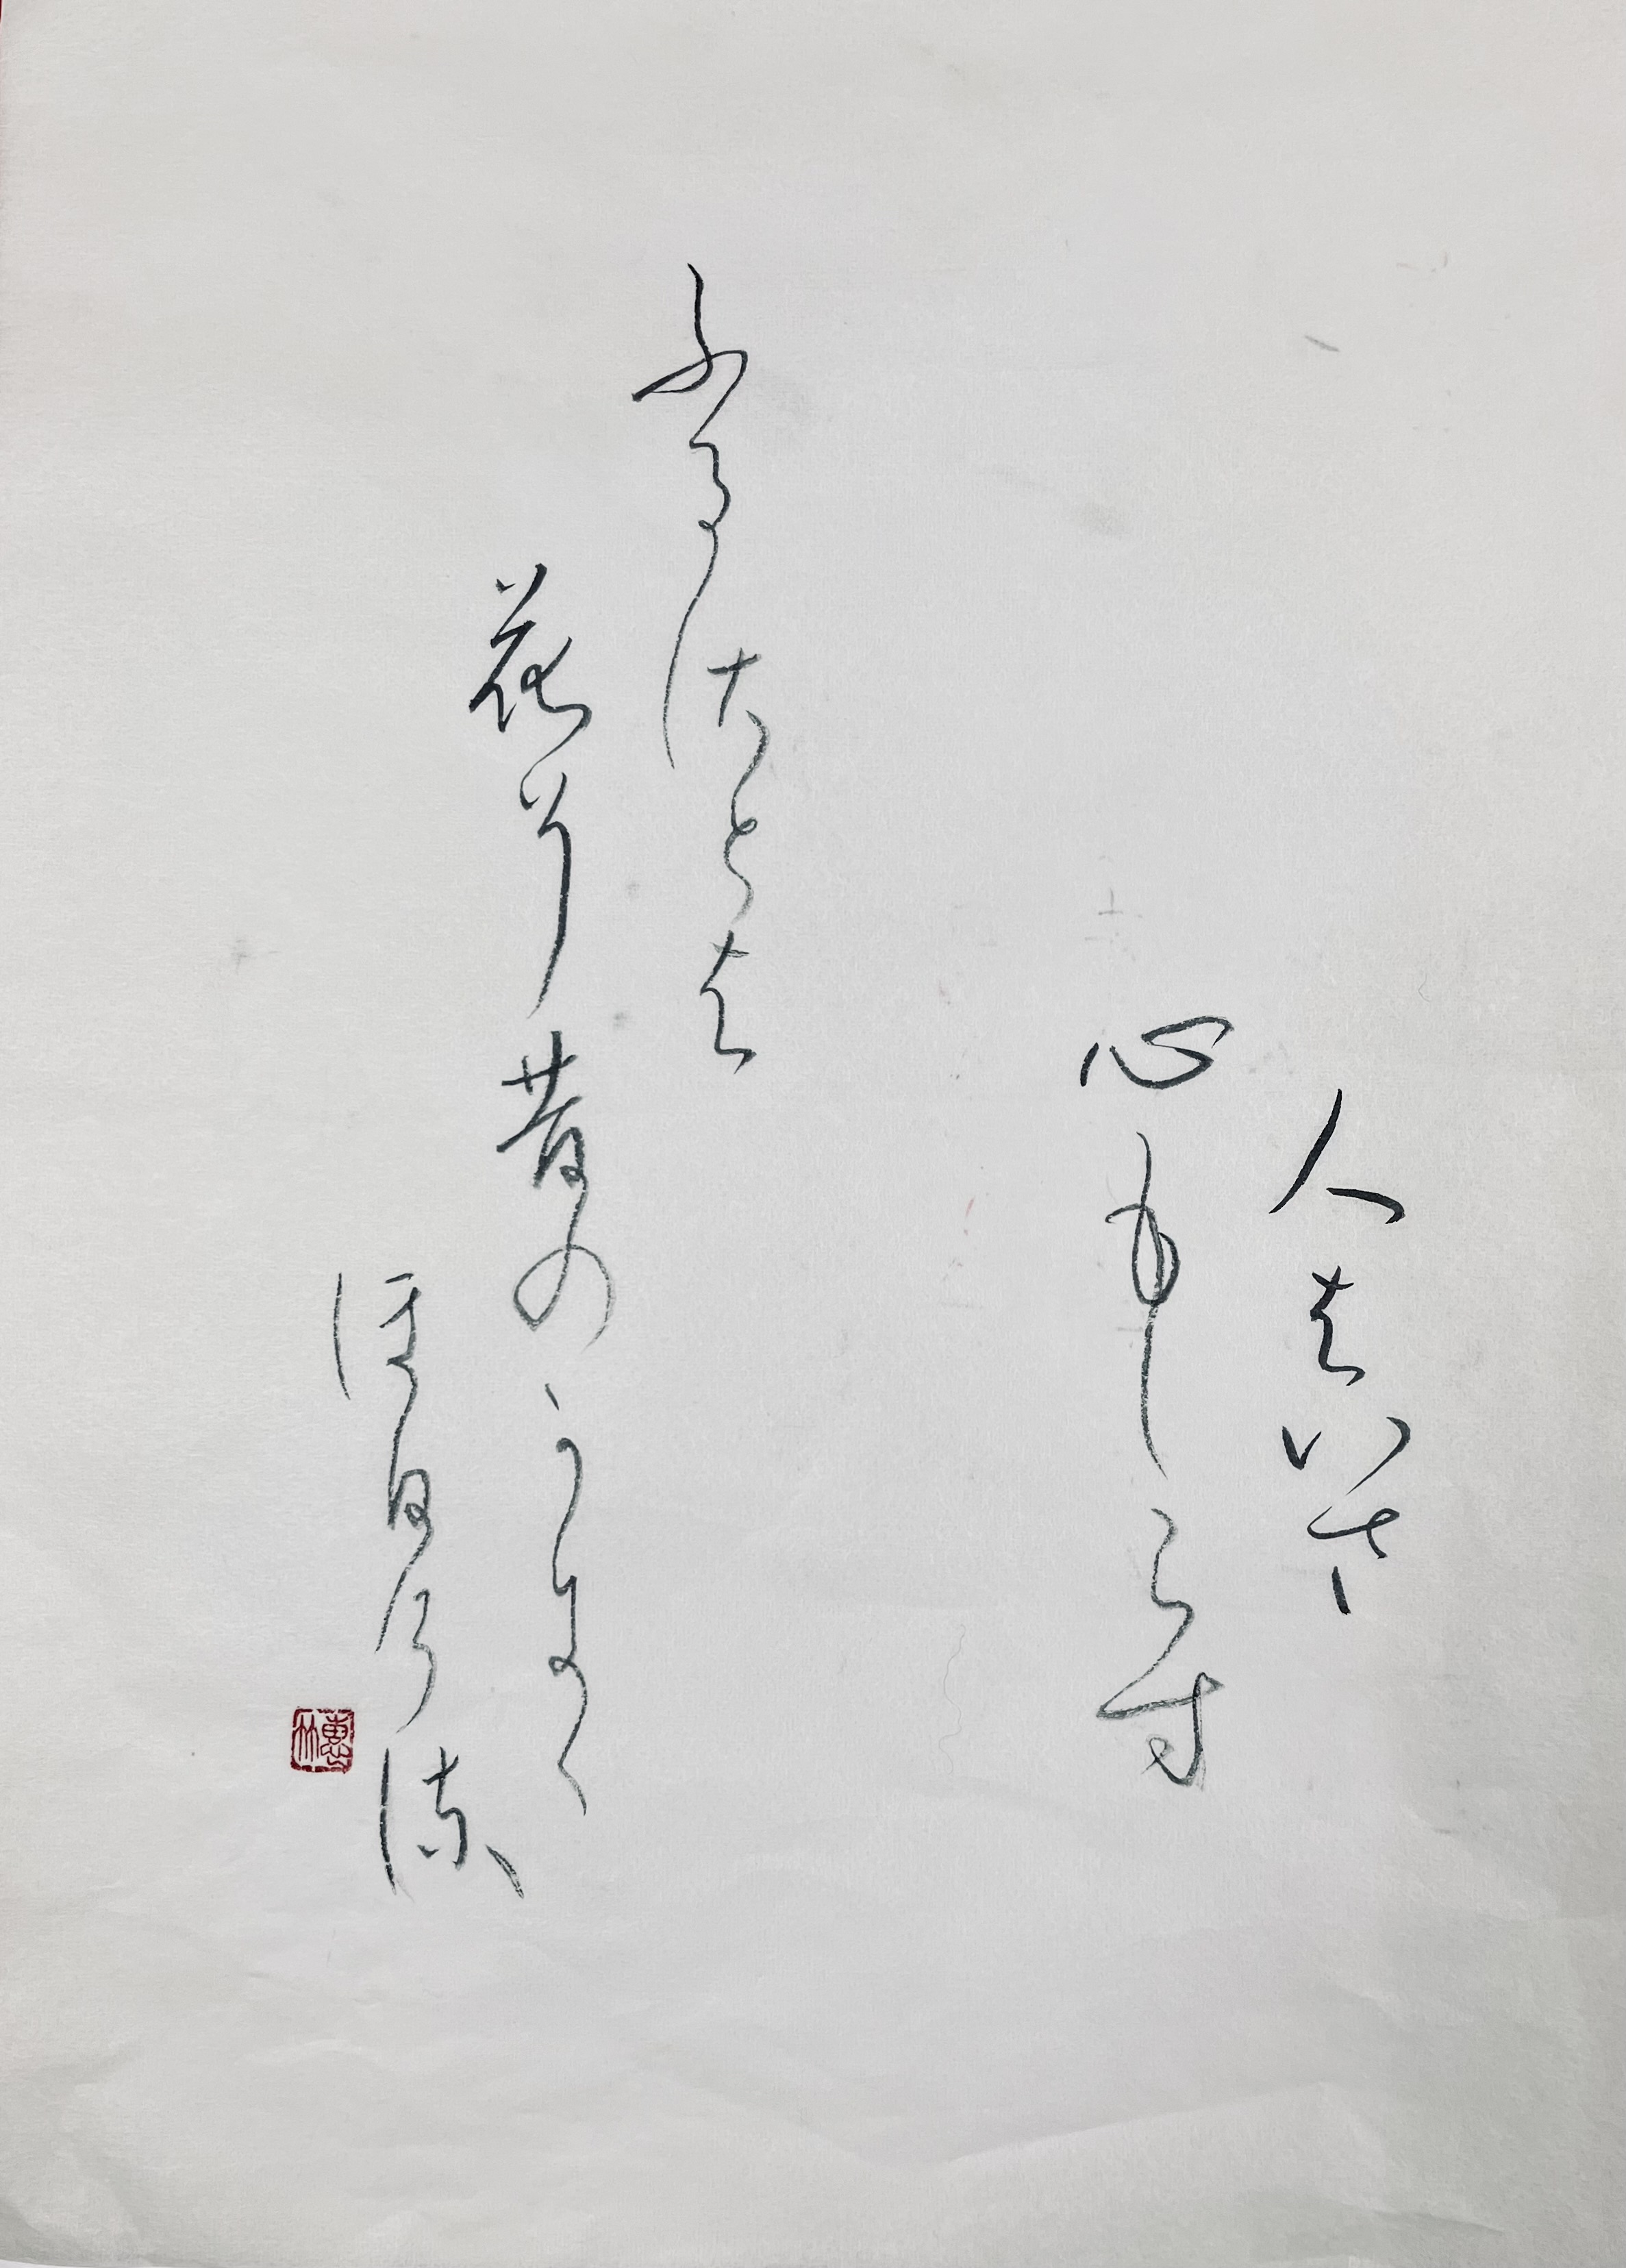 人はいさ
心もしらす
ふるさとは
花そ昔のかにゝ
ほひける